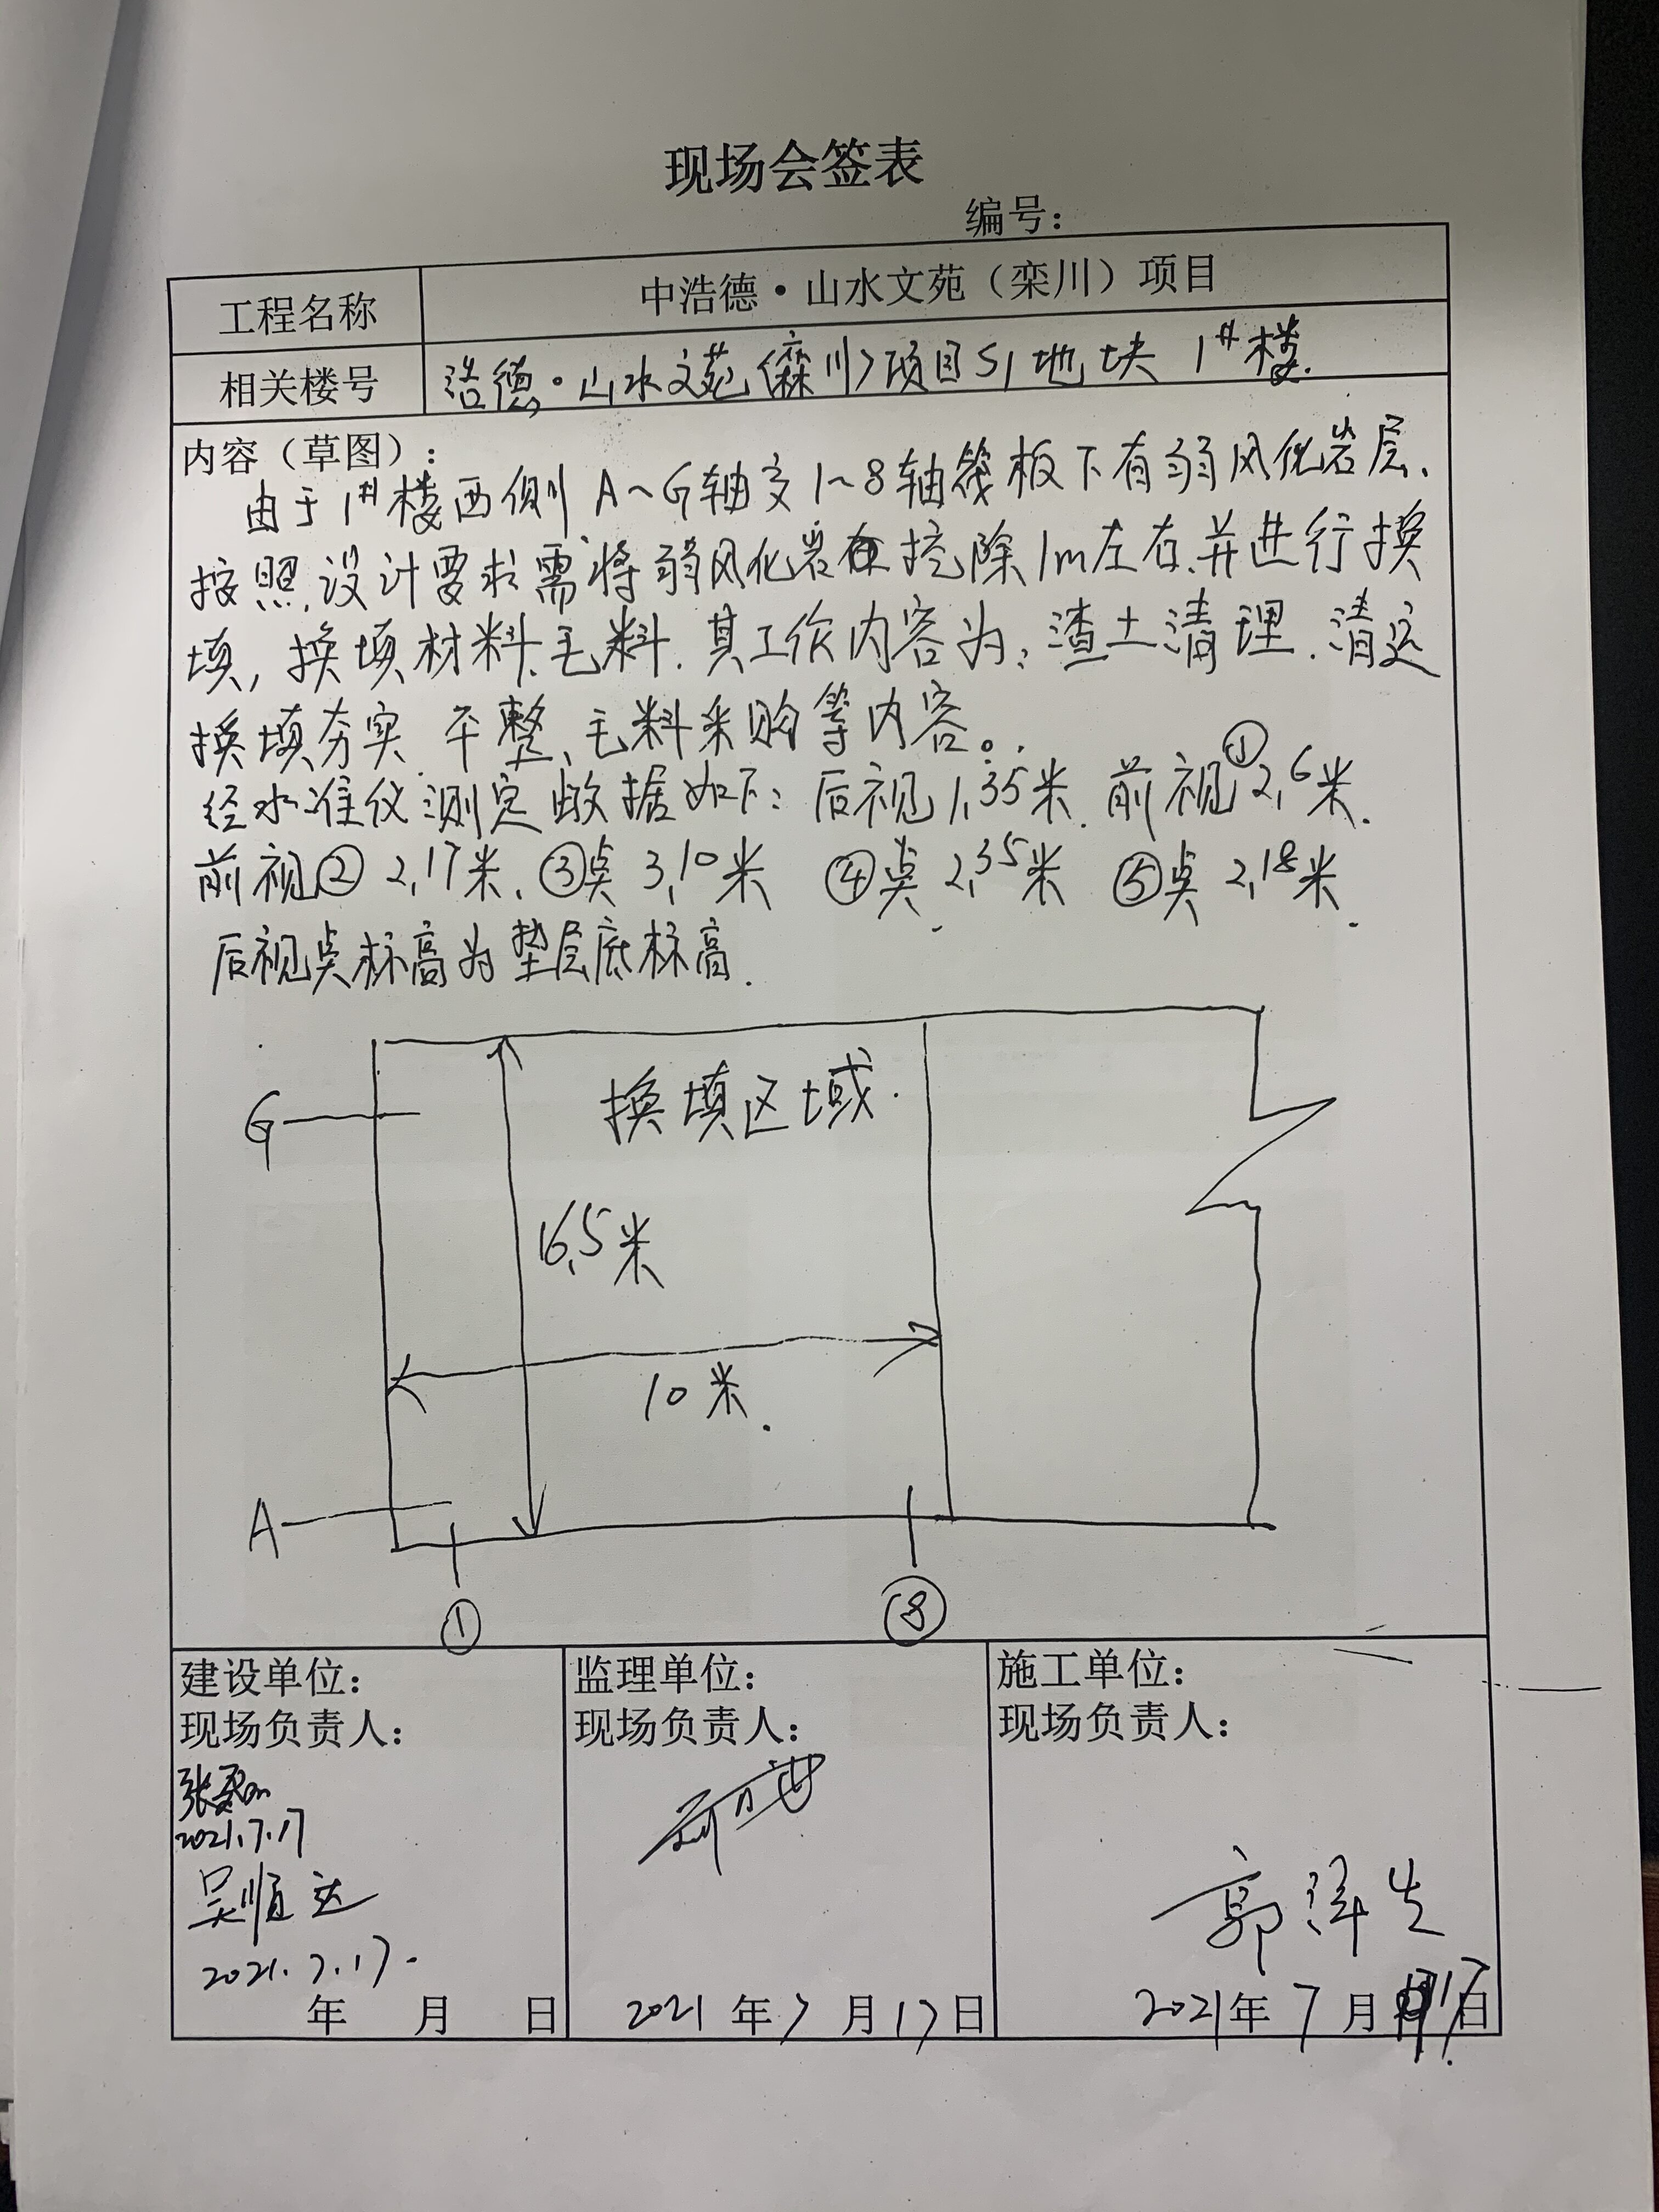 现场会签表
编号：
工程名称 中浩德·山水文苑（栾川）项目
相关楼号 浩德·山水文苑(栾川)项目S1地块 1#楼.
内容（草图）：
由于1#楼西侧A~G轴交1~8轴筏板下有弱风化岩层.
按照设计要求需将弱风化岩在挖除1m左右.并进行换
填,换填材料毛料.其工作内容为:渣土清理.清运
换填夯实.平整、毛料采购等内容。
经水准仪测定数据如下:后视1.35米.前视①2.6米.
前视②2.17米.③点3.10米 ④点2.35米 ⑤点2.18米.
后视点标高为垫层底标高.
换填区域.
G
16.5米
10米.
A
① ⑧
建设单位：
现场负责人：
张
2021.7.17
吴顺达
2021.7.17.
年 月 日
监理单位：
现场负责人：
2021年7月17日
施工单位：
现场负责人：
郭泽生
2021年7月17日